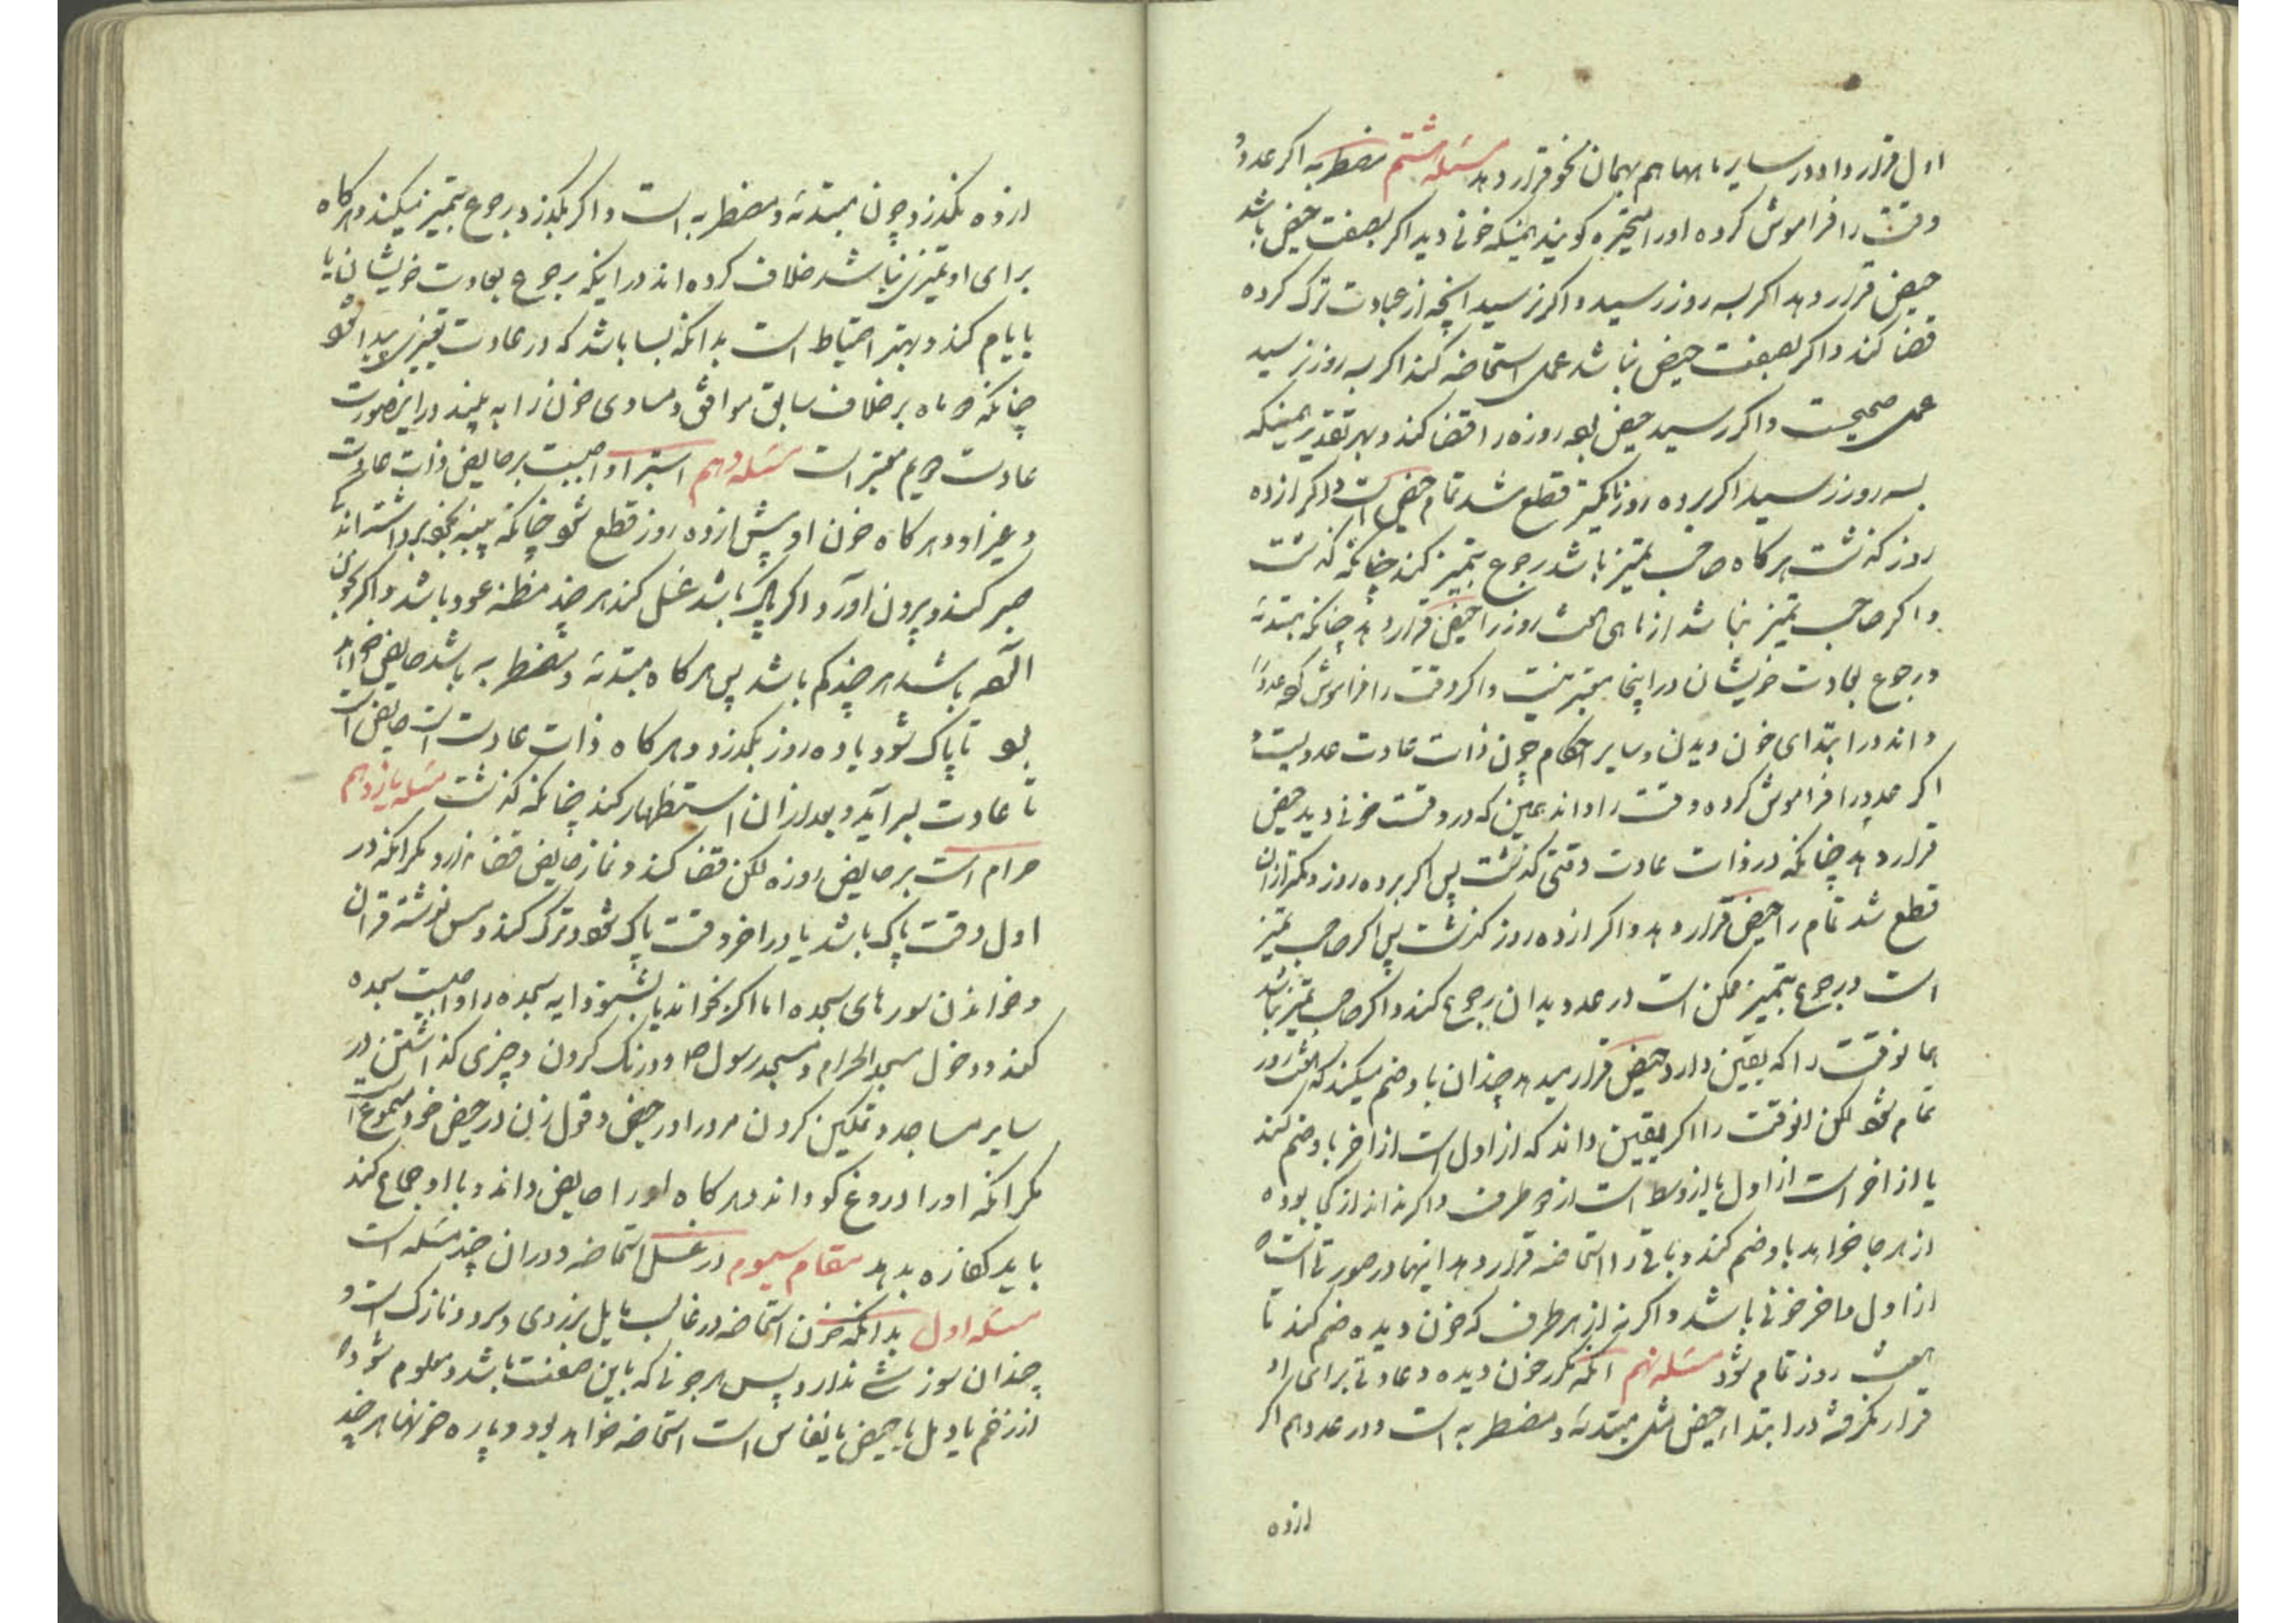 اول قرار داد در سایر ماهها هم بهمان نحو قرار دهد مسئله هشتم مضطربه اگر عدد و
وقت را فراموش کرده او را متحیره گویند همینکه خونی دید اگر بصفت حیض باشد
حیض قرار دهد اگر بسه روز رسید و اگر نرسید آنچه از عبادت ترک کرده
قضا کند و اگر بصفت حیض نباشد عمل استحاضه کند اگر بسه روز نرسید
عمل صحیحست و اگر رسید حیض بوده روزه را قضا کند و بهر تقدیر همینکه
بسه روز رسید اگر بر ده روز یا کمتر قطع شد تمام حیض است و اگر از ده
روز گذشت هرگاه صاحب تمیز باشد رجوع بتمیز کند چنانکه گذشت
و اگر صاحب تمیز نباشد از ماهی هفت روز را حیض قرار دهد چنانکه مبتدئه
و رجوع بعادت خویشان در اینجا معتبر نیست و اگر وقت را فراموش کرده عدد را
داند در ابتدای خون دیدن و سایر احکام چون ذات عادت عددیست و
اگر عدد را فراموش کرده وقت را داند همین که در وقت خونی دید حیض
قرار دهد چنانکه در ذات عادت وقتی گذشت پس اگر بر ده روز و کمتر از ان
قطع شد تمام را حیض قرار دهد و اگر از ده روز گذشت پس اگر صاحب تمیز
است و رجوع بتمیز ممکن است در عدد بدان رجوع کند و اگر صاحب تمیز نباشد
همانوقت را که یقین دارد حیض قرار میدهد چندان باو ضم میکند که هفت روز
تمام شود لکن انوقت را اگر یقین داند که از اول است از اخر باو ضم کند
یا از اخر است از اول یا از وسط است از دو طرف و اگر نداند از کی بوده
از هر جا خواهد باو ضم کند و باقی را استحاضه قرار دهد اینها در صورتیست که
از اول ما خر خونی باشد و اگر نه از هر طرف که خون دیده ضم کند تا
هفت روز تمام شود مسئله نهم انکه مکرر خون دیده و عادتی برای او
قرار نگرفته در ابتداء حیض مثل مبتدئه و مضطربه است و در عدد هم اگر
از ده
از ده نگذرد چون مبتدئه و مضطربه است و اگر بگذرد رجوع بتمیز میکند و هرگاه
برای او تمیزی نباشد خلاف کرده اند در اینکه رجوع بعادت خویشان یا
بایام کند و بهتر احتیاط است بدانکه بسا باشد که در عادت تغییری پیدا شود
چنانکه دو ماه بر خلاف سابق موافق و مساوی خون را به بیند در اینصورت
عادت دویم معتبر است مسئله دهم استبرا واجبست بر حایض ذات عادت
و غیر او و هرگاه خون او پیش از ده روز قطع شود چنانکه پنبه بخود برداشته اندک
صبر کند و بیرون اورد اگر پاک باشد غسل کند هر چند مظنه عود باشد و اگر بخون
آلوده باشد هر چند کم باشد پس هرگاه مبتدئه و مضطربه باشد حایض خواهد
بود تا پاک شود یا ده روز بگذرد و هرگاه ذات عادت است حایض است
تا عادت بسر آید و بعد از ان استظهار کند چنانکه گذشت مسئله یازدهم
حرام است بر حایض روزه لکن قضا کند و نماز حایض قضا ندارد مگر انکه در
اول وقت پاک باشد یا در اخر وقت پاک شود و ترک کند و مس نوشته قران
و خواندن سورهای سجده اما اگر بخواند یا بشنود ایه سجده را واجبست سجده
کند و دخول مسجد الحرام و مسجد رسول ص و درنگ کردن و چیزی گذاشتن در
سایر مساجد و تمکین کردن مرد را در حیض و قول زن در حیض خود مسموع است
مگر انکه او را دروغ گو داند و هرگاه او را حایض داند و با او جماع کند
باید کفاره بدهد مقام سیوم در غسل استحاضه و در ان چند مسئله است
مسئله اول بدانکه خون استحاضه در غالب مایل بزردی و سرد و نازک است و
چندان سوزشی ندارد پس هر خونی که باین صفت باشد و معلوم شود که
از زخم یا دمل یا حیض یا نفاس است استحاضه خواهد بود و پاره خونها هر چند